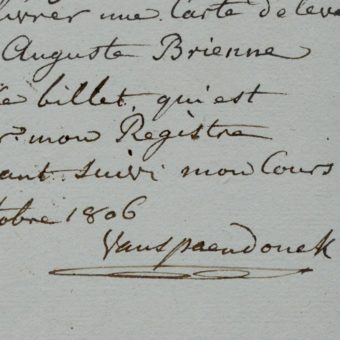 livrer une Carte d'eleve
Auguste Brienne
billet, qui est
mon Registre
ant suivi mon Cours
tobre 1806
Vanspaendonck